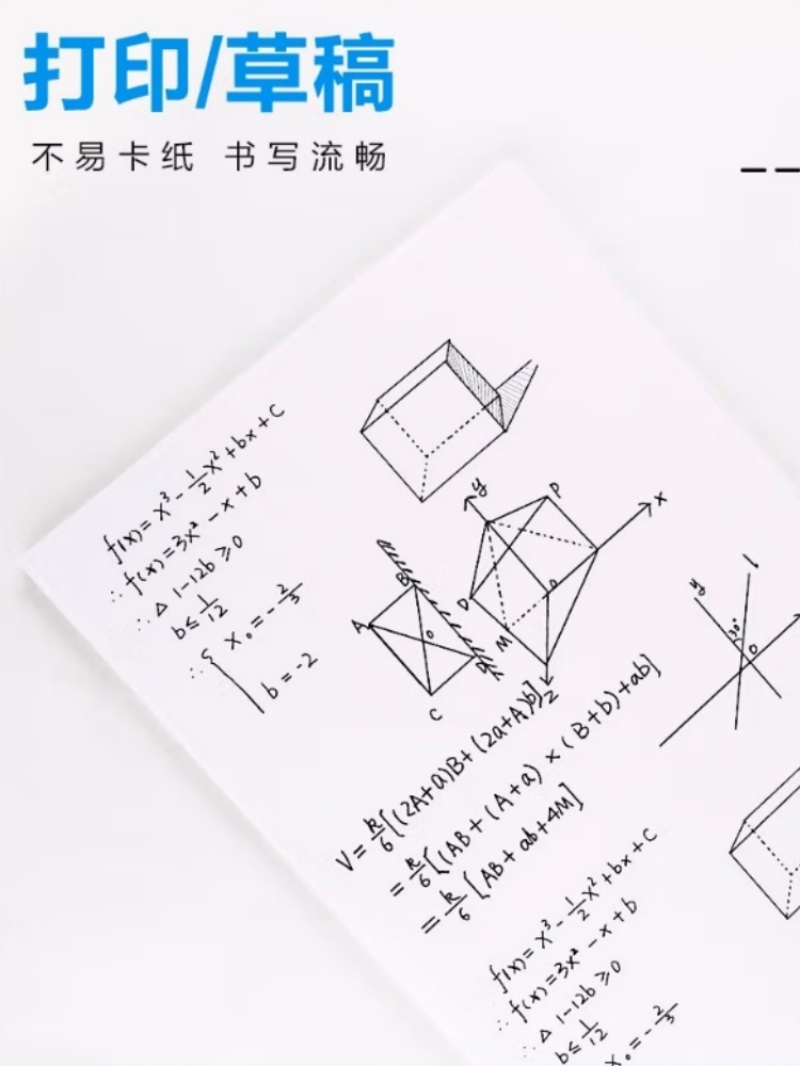 打印/草稿
不易卡纸 书写流畅
f(x)=x³-1/2x²+bx+C
∴f(x)=3x²-x+b
∴△1-12b≥0
b≤1/12
∴{x₀=-2/3
b=-2
y
P
x
D
M
Z
B
A
O
D
C
y
l
30°
O
V=h/6[(2A+a)B+(2a+A)b]
=h/6[(AB+(A+a)×(B+b)+ab]
=h/6[AB+ab+4M]
f(x)=x³-1/2x²+bx+C
∴f(x)=3x²-x+b
∴△1-12b≥0
b≤1/12
x₀=-2/3